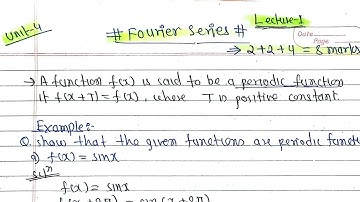 Unit-4
# Fourier Series #
Lecture-1
Date
Page
→ 2+2+4 = 8 marks
→ A function f(x) is said to be a periodic function
if f(x+T) = f(x), where T is positive constant.
Example:-
Q. Show that the given functions are periodic funct
a) f(x) = sinx
Solⁿ
f(x) = sinx
f(x+2π) = sin(x+2π)